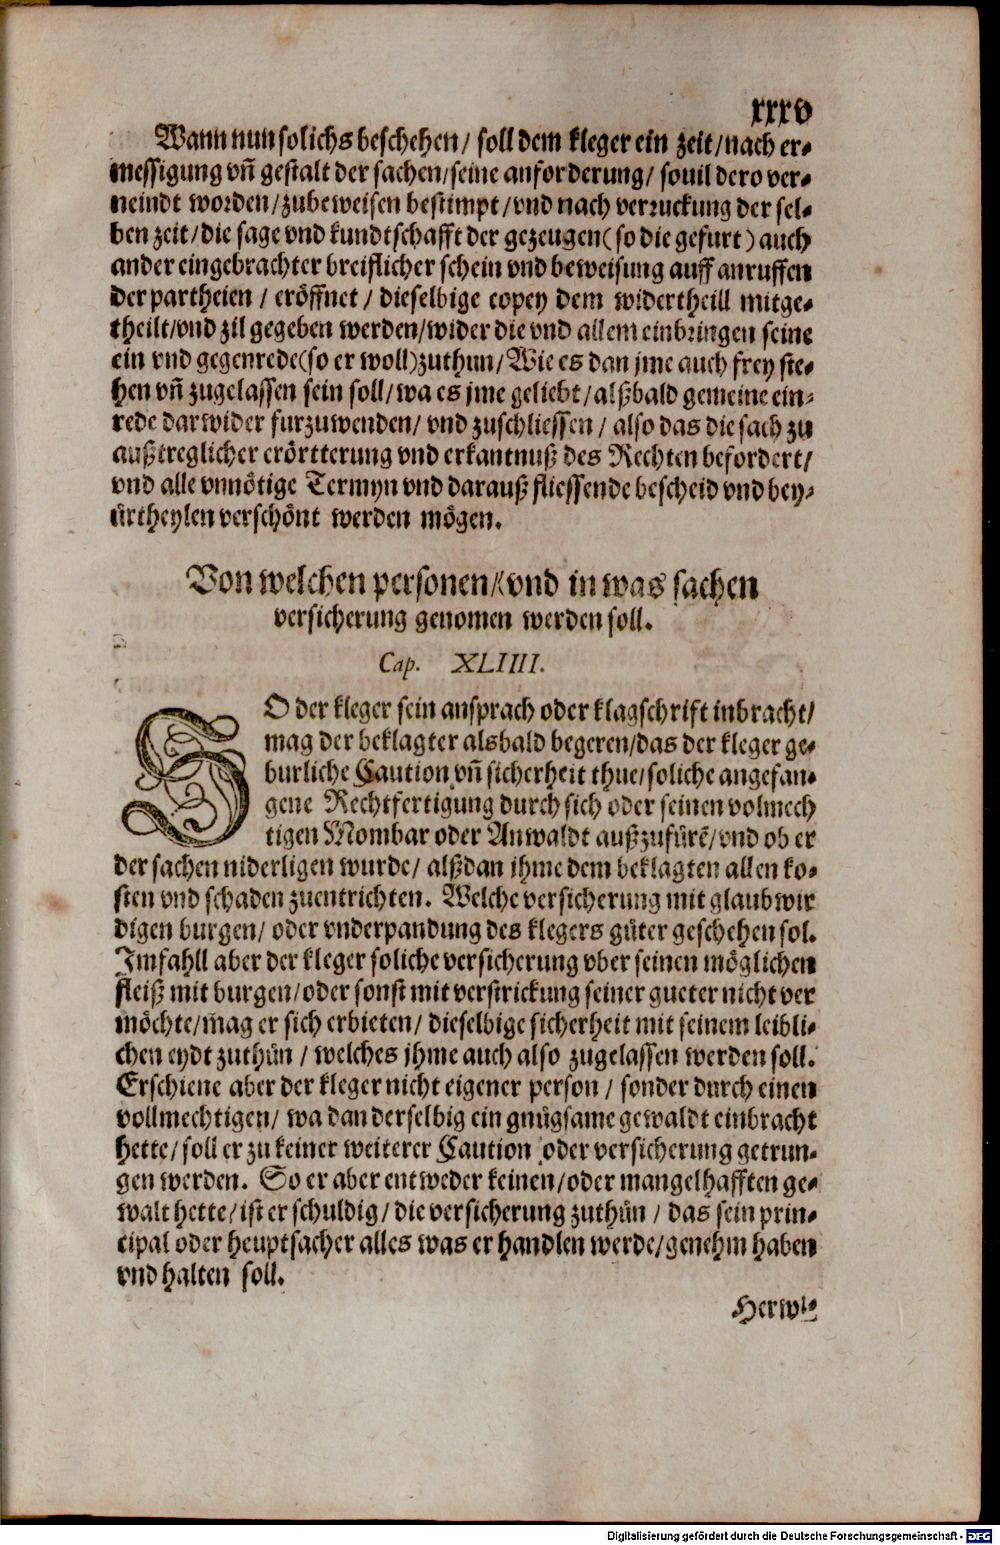 xxxv
Wann nun solichs beschehen/ soll dem kleger ein zeit/nach er-
messigung vñ gestalt der sachen/seine anforderung/ souil dero ver-
neindt worden/zubeweisen bestimpt/vnd nach verruckung der sel-
ben zeit/die sage vnd kundtschafft der gezeugen(so die gefurt) auch
ander eingebrachter breiflicher schein vnd beweisung auff anruffen
der partheien / eröffnet / dieselbige copey dem widertheill mitge-
theilt/vnd zil gegeben werden/wider die vnd allem einbringen seine
ein vnd gegenrede(so er woll)zuthun/Wie es dan jme auch frey ste-
hen vñ zugelassen sein soll/wa es jme geliebt/alßbald gemeine ein-
rede darwider furzuwenden/ vnd zuschliessen / also das die sach zu
außtreglicher erörtterung vnd erkantnuß des Rechten befordert/
vnd alle vnnötige Termyn vnd darauß fliessende bescheid vnd bey-
ürtheylen verschönt werden mögen.
Von welchen personen/vnd in was sachen
versicherung genomen werden soll.
Cap. XLIIII.
SO der kleger sein ansprach oder klagschrift inbracht/
mag der beklagter alsbald begeren/das der kleger ge-
burliche Caution vñ sicherheit thue/soliche angefan-
gene Rechtfertigung durch sich oder seinen volmech
tigen Mombar oder Anwaldt außzufürē/vnd ob er
der sachen niderligen wurde/ alßdan ihme dem beklagten allen ko-
sten vnd schaden zuentrichten. Welche versicherung mit glaubwir
digen burgen/ oder vnderpandung des klegers güter geschehen sol.
Imfahll aber der kleger soliche versicherung vber seinen möglichen
fleiß mit burgen/oder sonst mit verstrickung seiner gueter nicht ver
möchte/mag er sich erbieten/ dieselbige sicherheit mit seinem leibli-
chen eydt zuthůn / welches jhme auch also zugelassen werden soll.
Erschiene aber der kleger nicht eigener person / sonder durch einen
vollmechtigen/ wa dan derselbig ein gnůgsame gewaldt einbracht
hette/ soll er zu keiner weiterer Caution oder versicherung getrun-
gen werden. So er aber entweder keinen/oder mangelhafften ge-
walt hette/ist er schuldig/ die versicherung zuthůn / das sein prin-
cipal oder heuptsacher alles was er handlen werde/genehm haben
vnd halten soll.
Herwi-
Digitalisierung gefördert durch die Deutsche Forschungsgemeinschaft - DFG